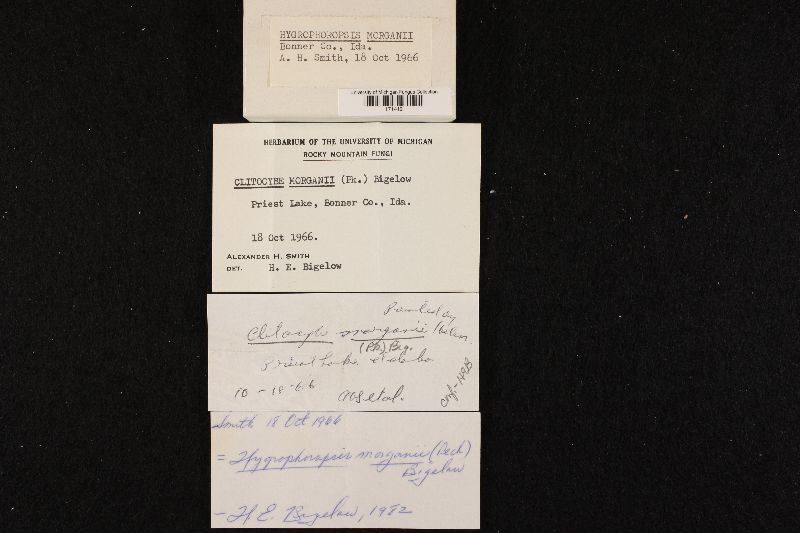 HYGROPHOROPSIS MORGANII
Bonner Co., Ida.
A. H. Smith, 18 Oct 1966
University of Michigan Fungus Collection
HERBARIUM OF THE UNIVERSITY OF MICHIGAN
ROCKY MOUNTAIN FUNGI
CLITOCYBE MORGANII (Pk.) Bigelow
Priest Lake, Bonner Co., Ida.
18 Oct 1966.
ALEXANDER H. SMITH
DET. H. E. Bigelow
Clitocybe morganii Helen
(Pk.) Big.
Priest Lake Idaho
10-18-66
AHS et al.
Smith 18 Oct 1966
= Hygrophoropsis morganii (Peck)
Bigelow
- H. E. Bigelow, 1982